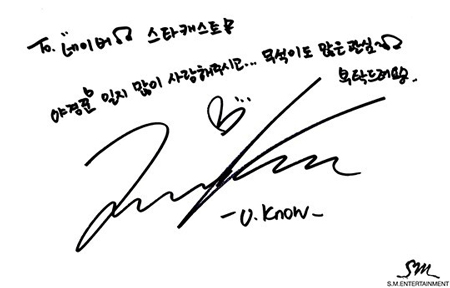 To. 네이버 스타캐스트
야경꾼 일지 많이 사랑해주시고... 무석이도 많은 관심~
부탁드려요..
-U.Know-
SM
S.M.ENTERTAINMENT